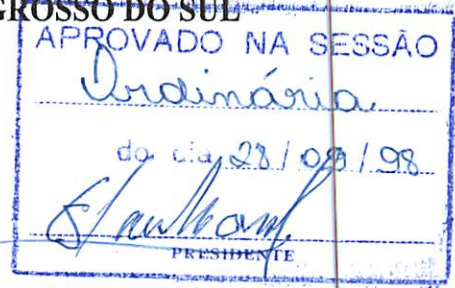 GROSSO DO SUL
APROVADO NA SESSÃO
Ordinária
do dia 28/09/98
PRESIDENTE